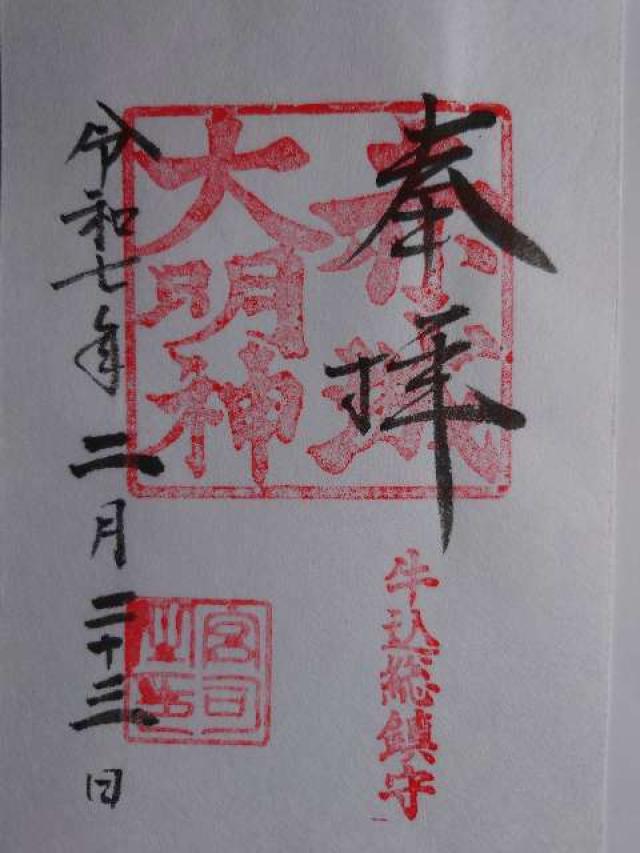 奉拝
赤城
大明神
牛込総鎮守
宮司
之印
令和七年二月二十三日